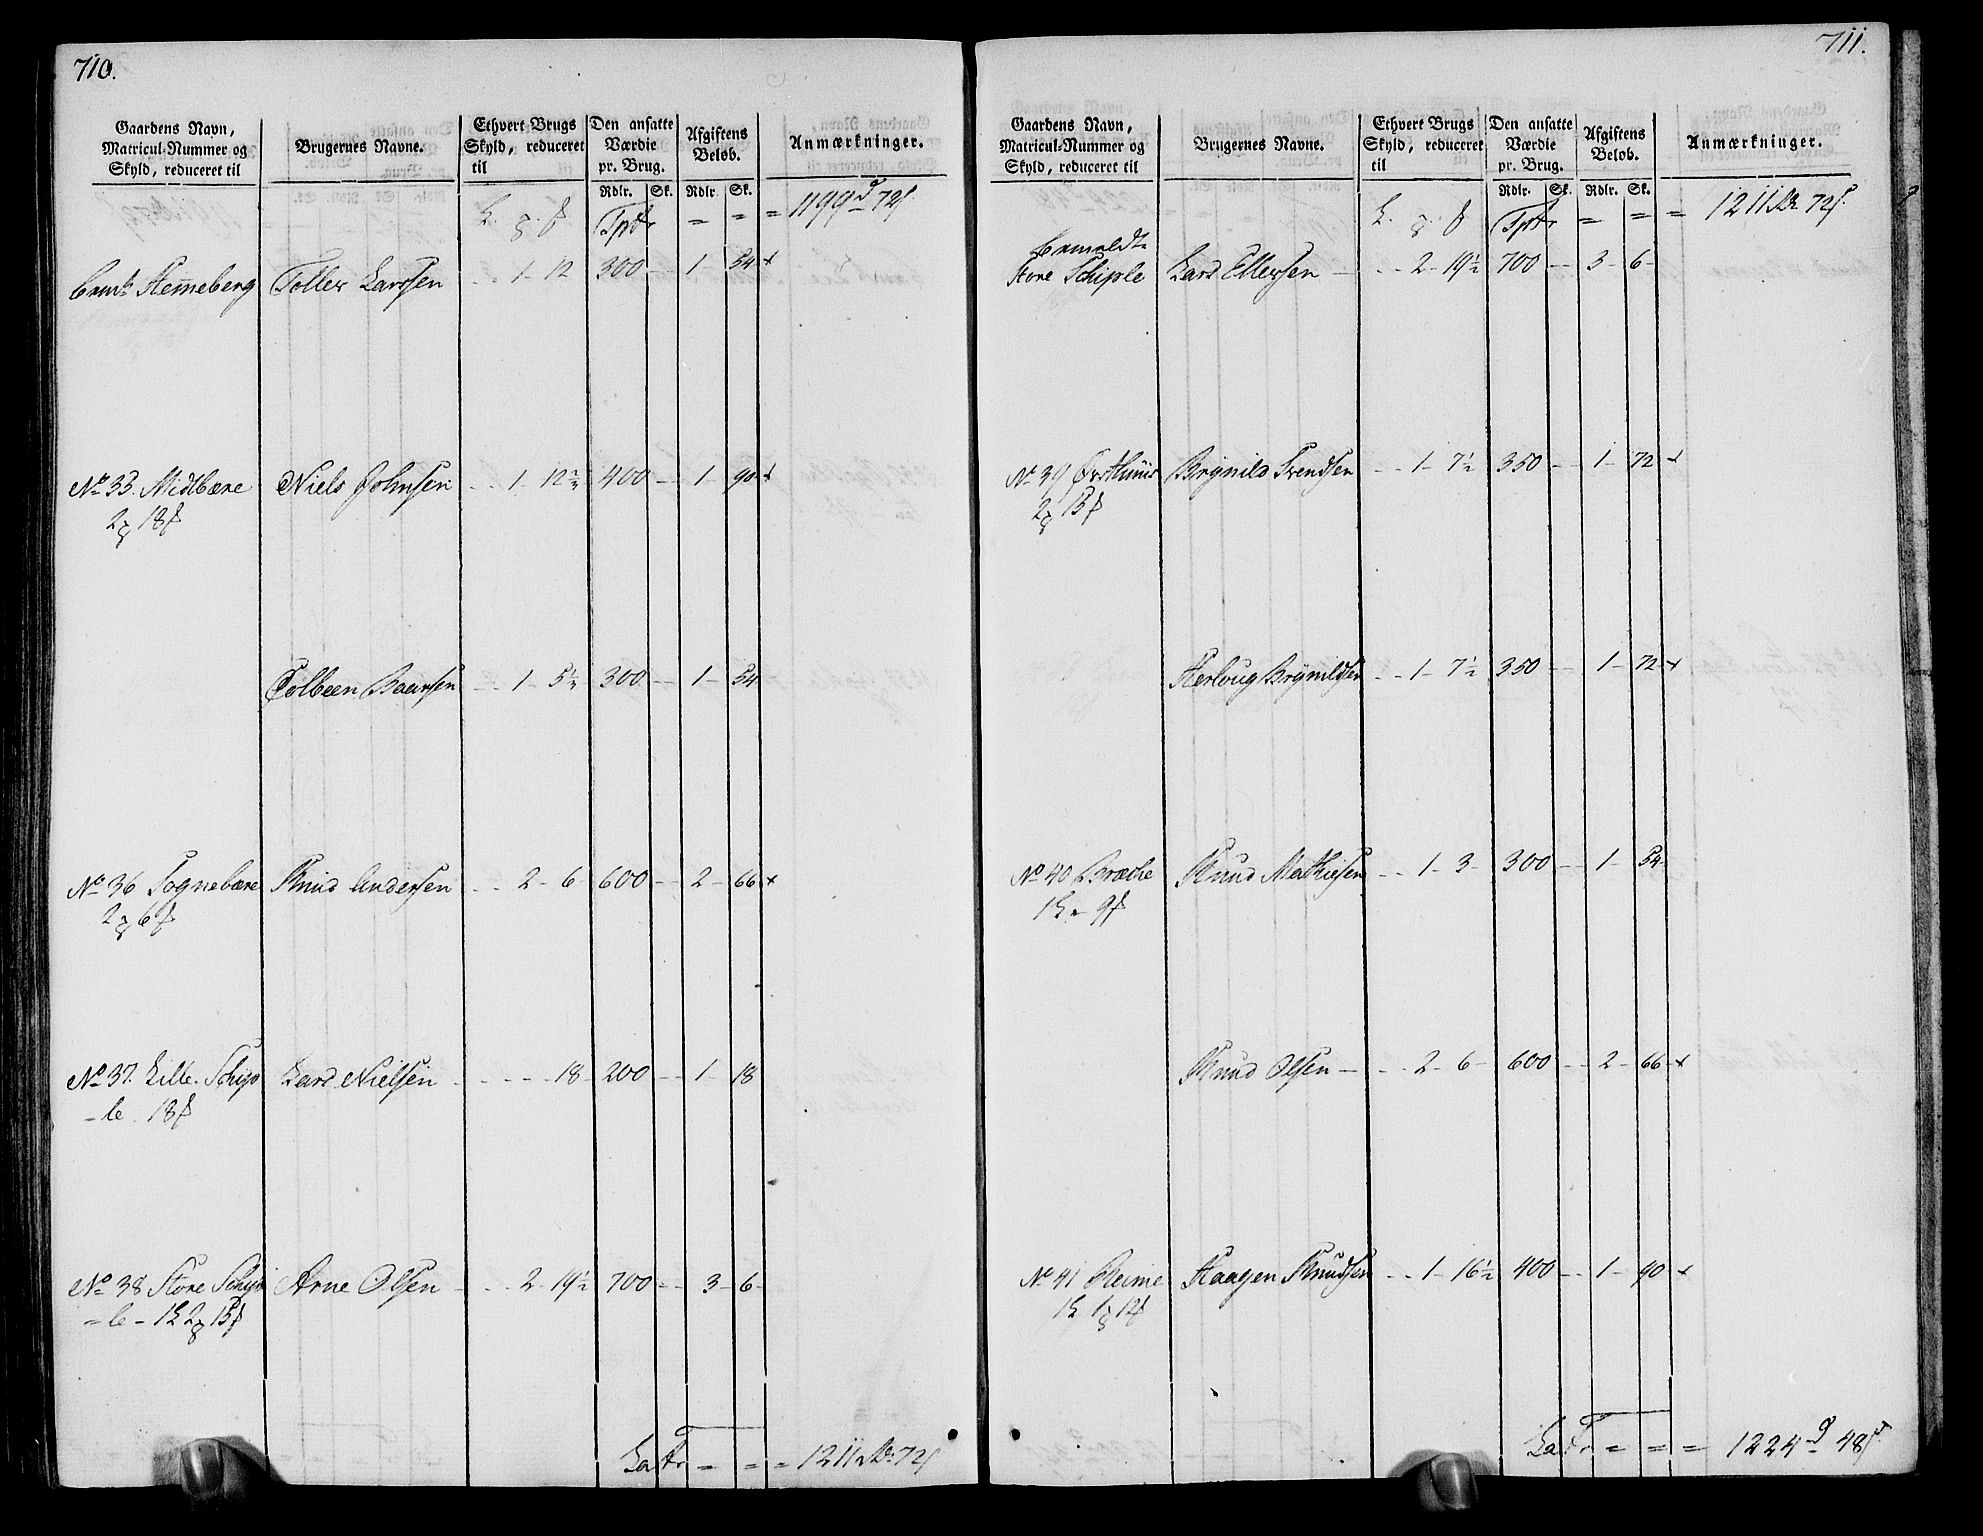 710.
Gaardens Navn, Matricul-Nummer og Skyld, reduceret til | Brugernes Navne. | Ethvert Brugs Skyld, reduceret til | Den ansatte Værdie pr. Brug. | Afgiftens Beløb. | Anmærkninger.
Rdlr. Sk. Rdlr. Sk.
Tpt = = = 1199 72
Henneberg Toller Larssen 1 - 12 300 - 1 - 54
No 33. Midtbøe Niels Johnsen 1 - 12 400 - 1 - 90
2 18
Tolbeen Baarsen 1 - 5½ 300 - 1 - 54
No 36 Sognebøe Knud Andersen 2 - 6 600 - 2 - 66
2 6
No 37. Lille Schip Lars Nielsen 18 - 200 - 1 - 18
- le 18
No 38 Store Schip Arne Olsen 2 - 19½ 700 - 3 - 6
- le - 2 15
Lat = = = 1211 72
711.
Gaardens Navn, Matricul-Nummer og Skyld, reduceret til | Brugernes Navne. | Ethvert Brugs Skyld, reduceret til | Den ansatte Værdie pr. Brug. | Afgiftens Beløb. | Anmærkninger.
Rdlr. Sk. Rdlr. Sk.
Tpt = = = 1211 72
Anmeldte
Store Schiple Lars Ellersen 2 - 19½ 700 - 3 - 6
No 39 Brynild Svendsen 1 - 7½ 350 - 1 - 72
2 15
Herloug Brynildsen 1 - 7½ 350 - 1 - 72
No 40 Bræche Knud Mathiesen 1 - 3 - 300 - 1 - 54
1 - 9
Knud Olsen 2 - 6 - 600 - 2 - 66
No 41 Haagen Knudsen 1 - 16½ 400 - 1 - 90
1 1 12
Lat = = = 1224 48